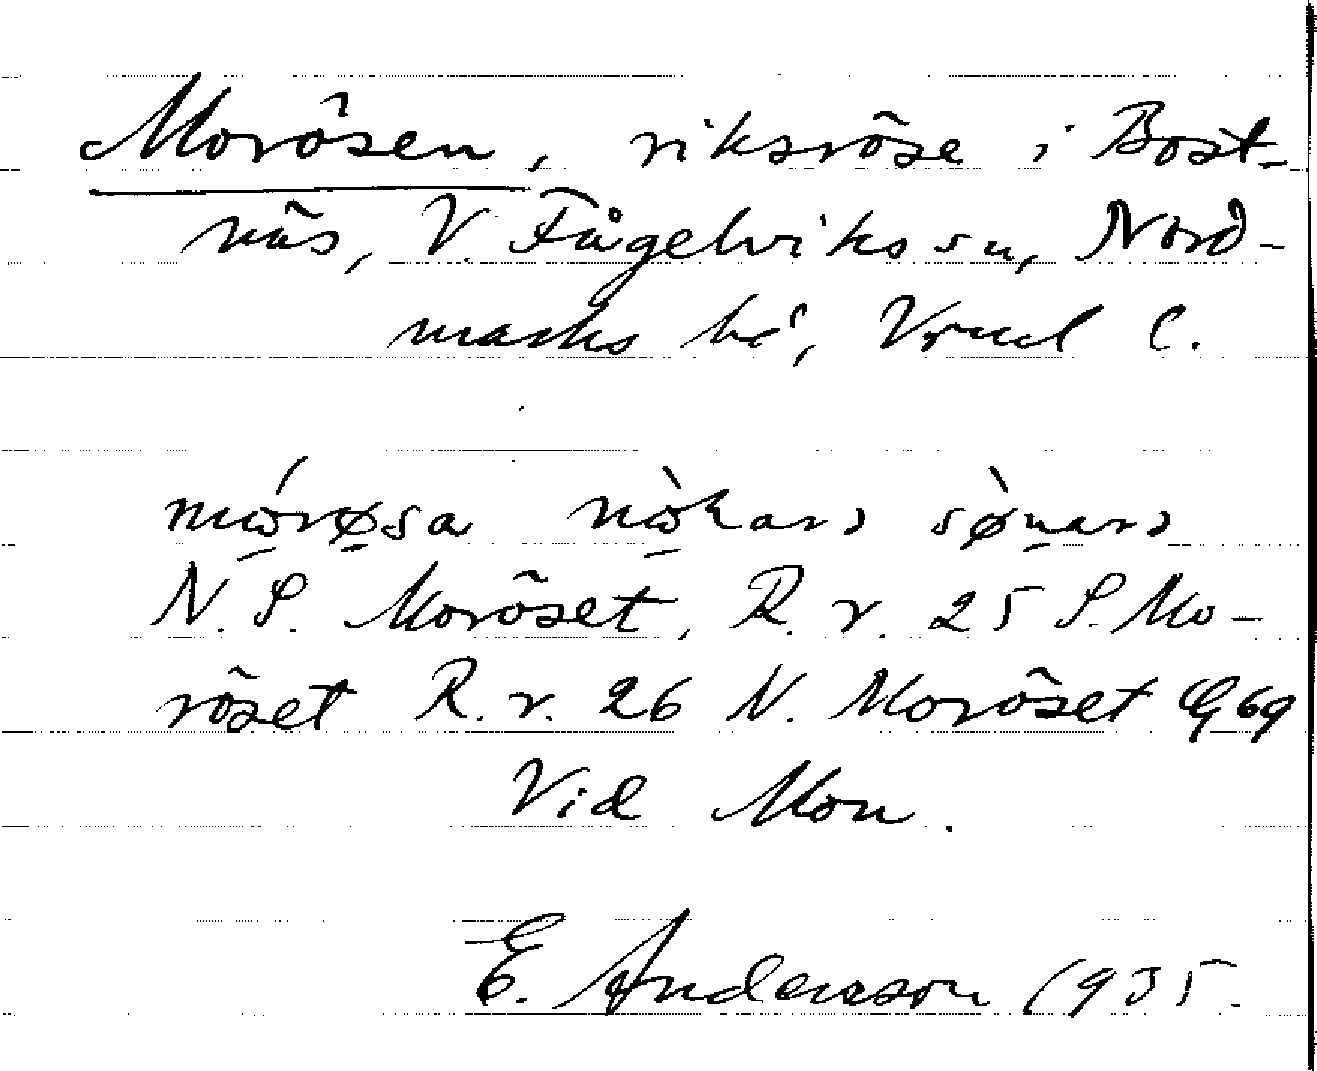 Morösen, riksröse i Bost-
näs, V Fågelviks sn, Nord-
marks hd, Vrml l.
mórøsa nòkarɔ sø̀narɔ
N. S. Moröset, R. r. 25 S. Mo-
röset R. r. 26 N. Moröset G 69
Vid Mon.
E. Andersson 1935.